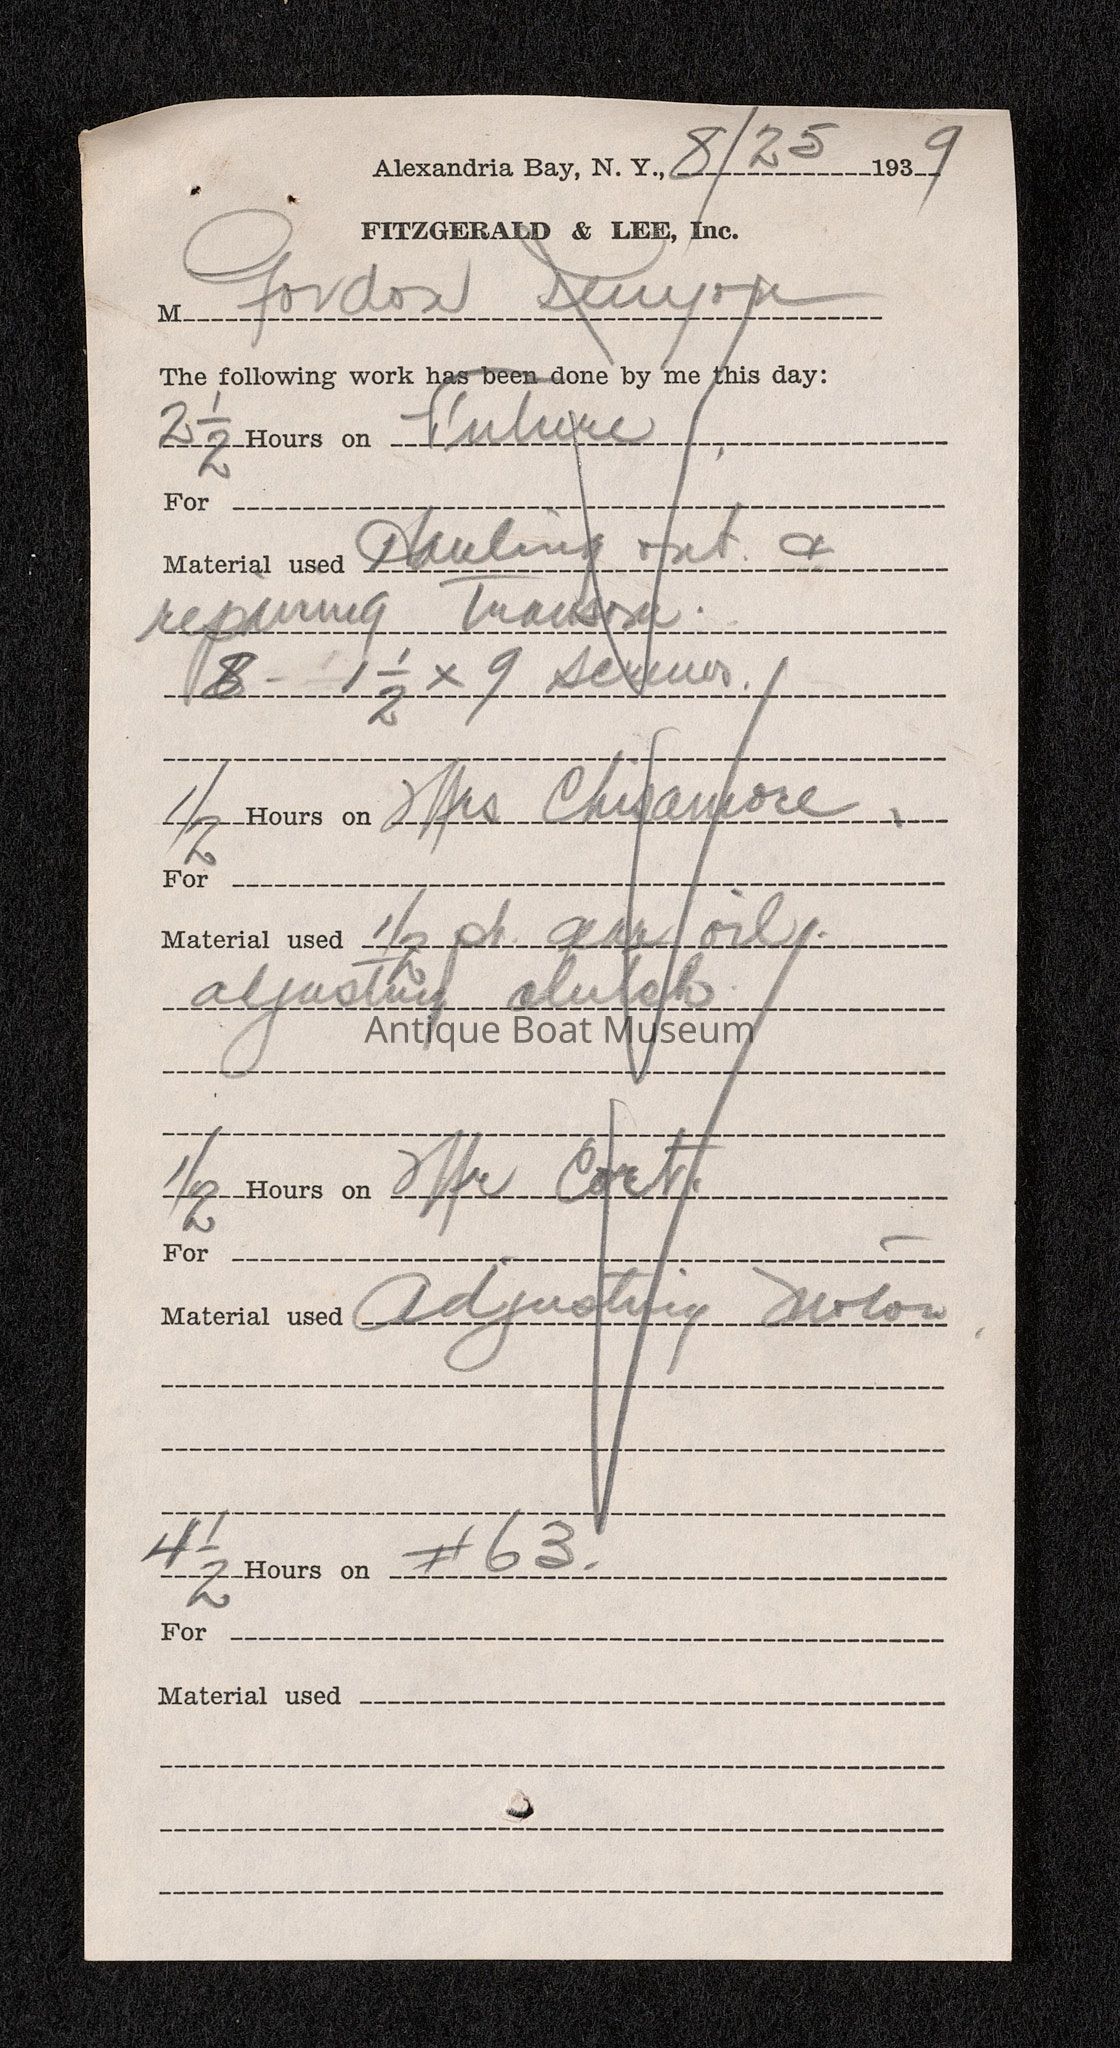 Alexandria Bay, N. Y., 8/25 1939
FITZGERALD & LEE, Inc.
M Gordon Kenyon
The following work has been done by me this day:
2 1/2 Hours on
For
Material used Hauling out &
repairing Transom.
8 - 1 1/2 x 9 screws.
1/2 Hours on Mrs Chisamore
For
Material used 1/2 pt. gear oil.
adjusting clutch
Antique Boat Museum
1/2 Hours on Mr
For
Material used Adjusting Motor
4 1/2 Hours on #63.
For
Material used